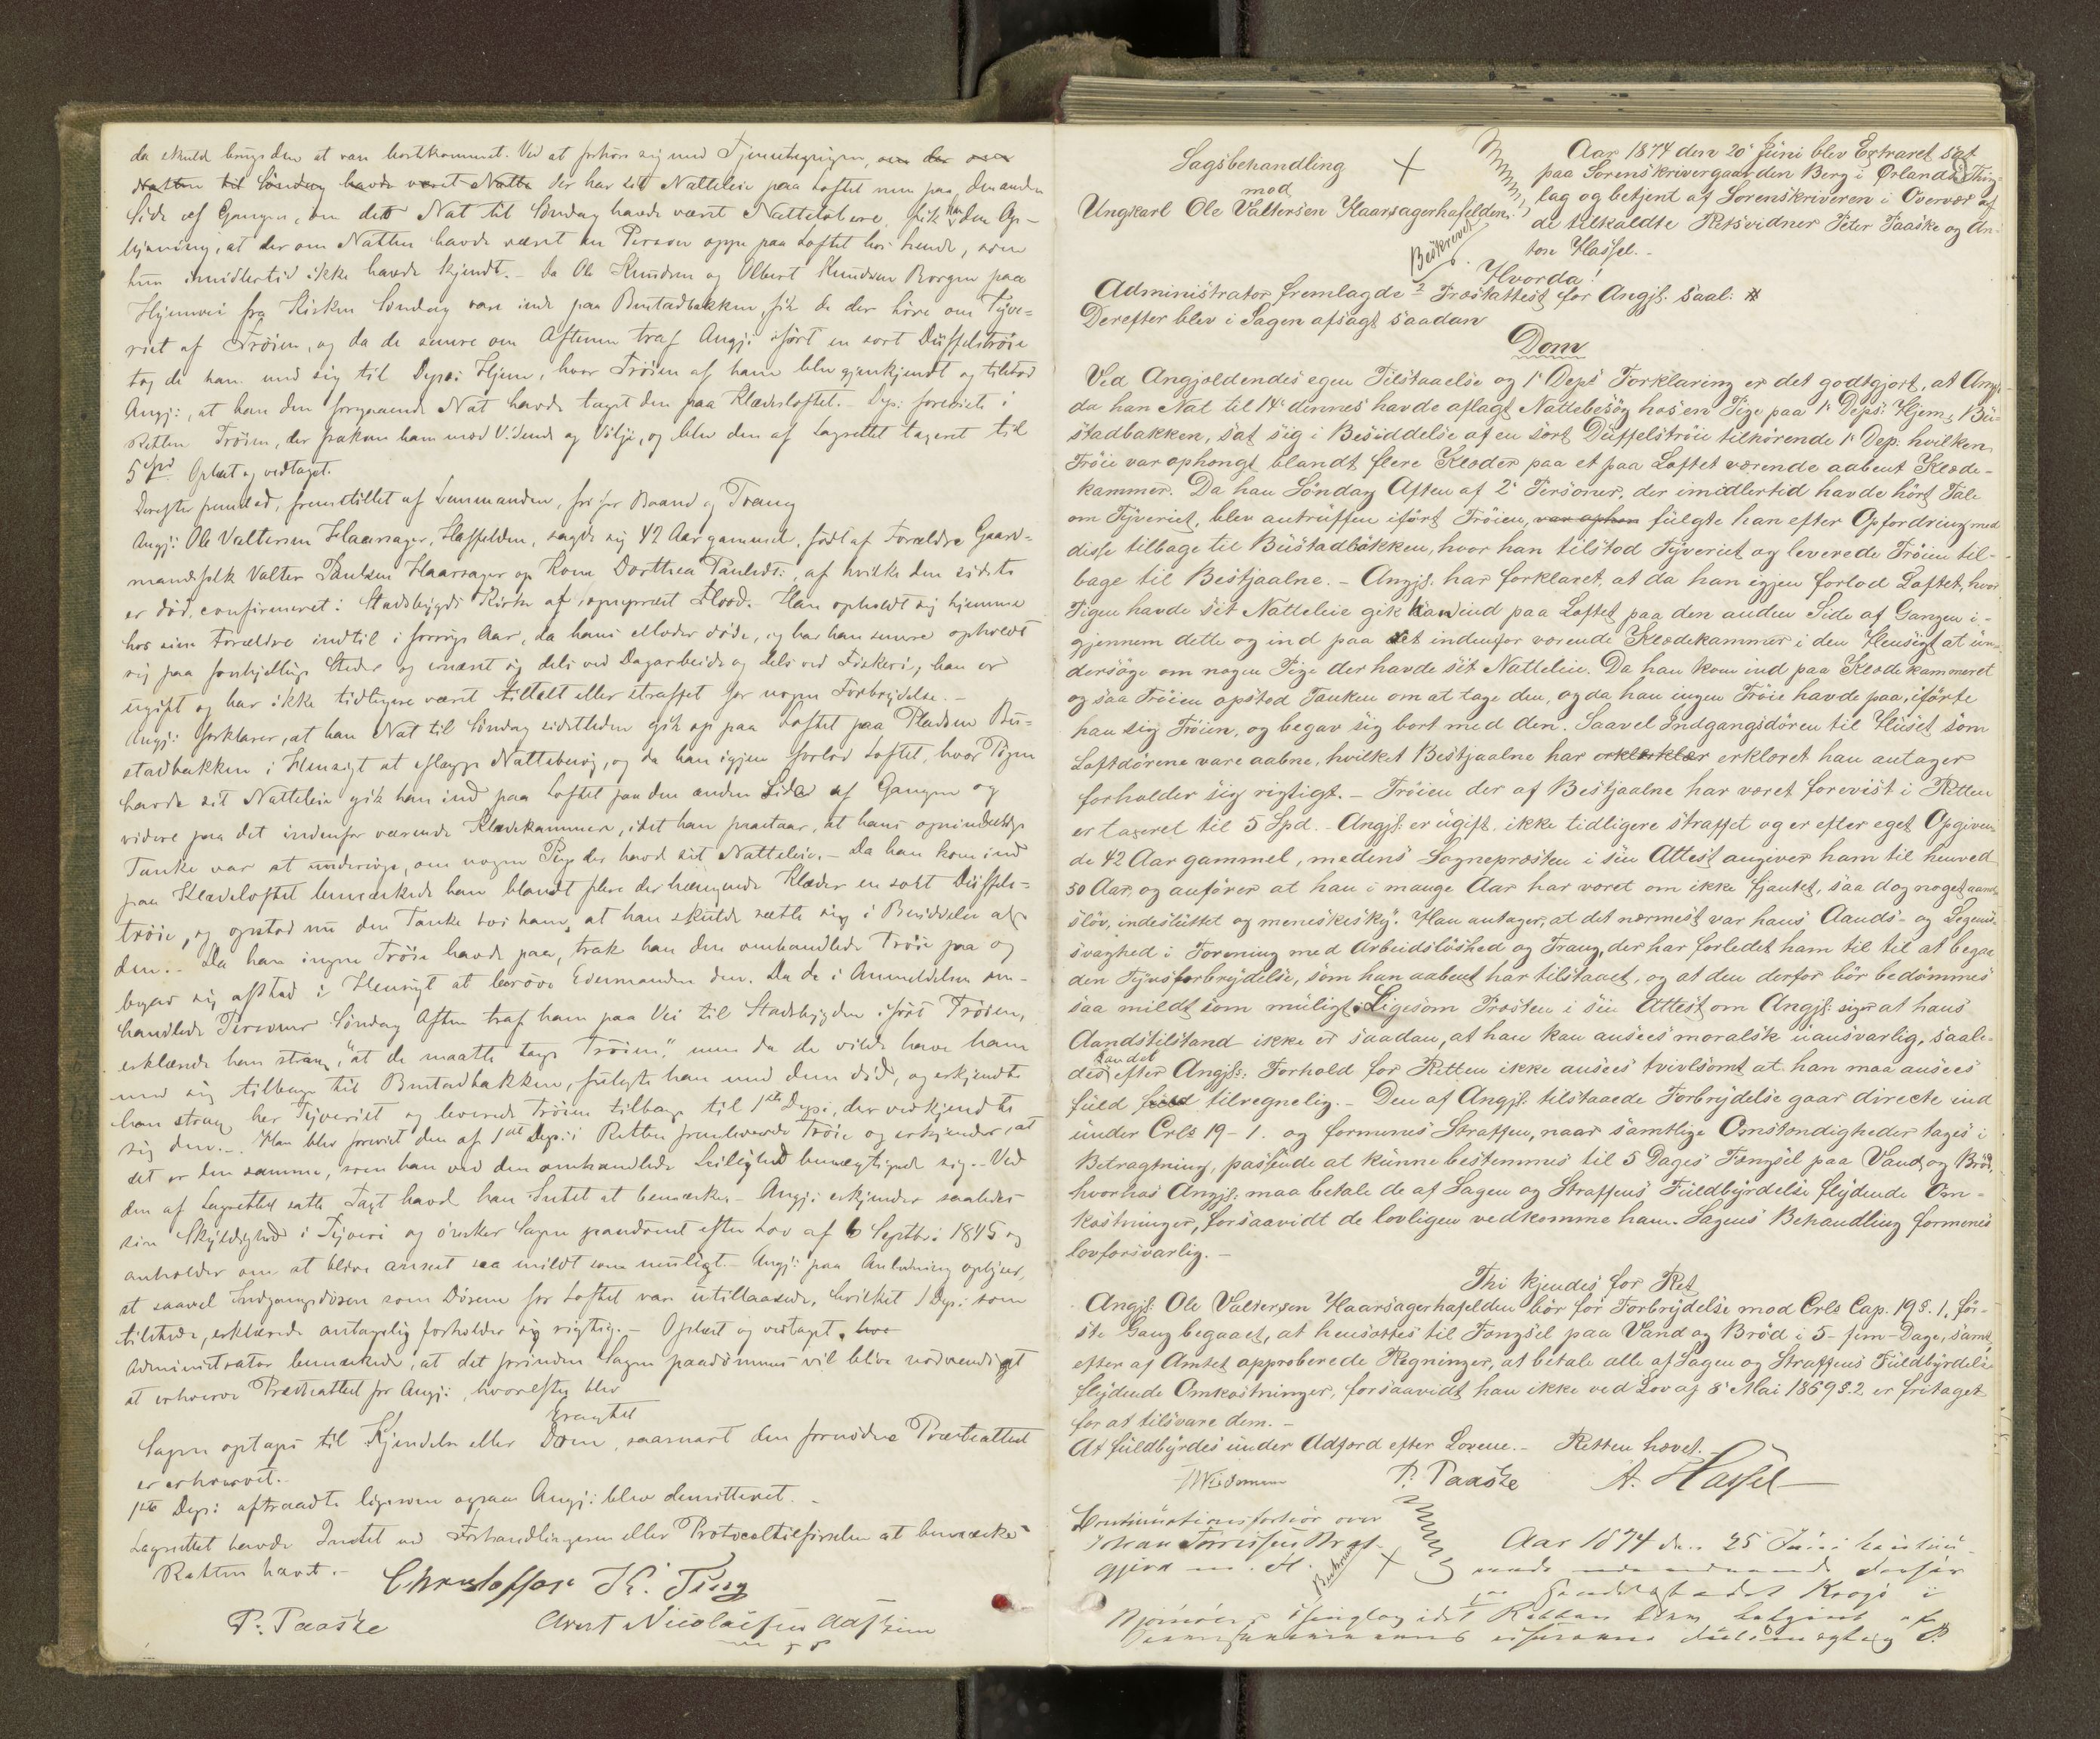 da skulde bringe den at være bortkommet. Ved at forhøre sig med Tjenestepigen, om der om
Natten til Søndag havde været Natte der har sit Natteleie paa Loftet men paa den anden
Side af Gangen, om det Nat til Søndag havde været Natteløbere, fik han den Op-
lysning, at der om Natten havde været en Person oppe paa Loftet hos hende, som
hun imidlertid ikke havde kjendt. - Da Ole Knudsen og Olbert Knudsen Borgen paa
Hjemvei fra Kirken Søndag vare inde paa Bustadbakken, fik de der høre om Tyve-
riet af Trøien, og da de senere om Aftenen traf Angj: iført en sort Düffelstrøie
tog de ham med sig til Depos: Hjem, hvor Trøien af ham blev gjenkjendt og tilstod
Angj:, at han den forgaaende Nat havde taget den paa Klædesloftet. - Dep: foreviste i
Retten Trøien, der frakom ham mod Vidende og Vilje, og blev den af Lagrettet taxeret til
5 Spd. Oplæst og vedtaget.
Derefter fremstod, fremstillet af Lensmanden, fri for Baand og Tvang
Angj: Ole Valtersen Haarsager, Hasselden, sagde sig 42 Aar gammel, født af Forældre Gaard-
mandsfolk Valter Paulsen Haarsager og Kone Dorthea Paulsdt:, af hvilke den sidste
er død, confirmeret i Stadsbygds Kirke af Sogneprest Flood. Han opholdt sig hjemme
hos sine Forældre indtil i forrige Aar, da hans Moder døde, og har han senere opholdt
sig paa forskjellige Steder og ernæret sig dels ved Dagarbeide og dels ved Fiskeri; han er
ugift og har ikke tidligere været tiltalt eller straffet for nogen Forbrydelse. -
Angj: forklarer, at han Nat til Søndag sidstleden gik op paa Loftet paa Pladsen Bu-
stadbakken i Hensigt at aflægge Nattebesøg, og da han igjen forlod Loftet, hvor Pigen
havde sit Natteleie gik han ind paa Loftet paa den anden Side af Gangen og
videre paa det indenfor værende Klædekammer, idet han paastaar, at hans oprindelige
Tanke var at undersøge, om nogen Pige der havde sit Natteleie. - Da han kom ind
paa Klædesloftet bemærkede han blandt flere der hængende Klæder en sort Düffels-
trøie, og opstod nu den Tanke hos ham, at han skulde sætte sig i Besiddelse af
den. - Da han ingen Trøie havde paa, trak han den omhandlede Trøie paa og
begav sig afsted i Hensigt at berøve Eiermanden den. Da de i Anmeldelsen om-
handlede Personer Søndag Aften traf ham paa Vei til Stadsbygden iført Trøien,
erklærede han strax, "at de maatte tage Trøien", men da de vilde have ham
med sig tilbage til Bustadbakken, fulgte han med dem did, og erkjendte
han strax her Tyveriet og leverede Trøien tilbage til 1ste Dep:, der vedkjendte
sig den. - Han blev forevist den af 1ste Dep: i Retten fremleverede Trøie og erkjender, at
det er den samme, som han ved den omhandlede Leilighed bemægtigede sig. - Ved
den af Lagrettet satte Taxt havde han Intet at bemærke. - Angj: erkjender saaledes
sin Skyldighed i Tyveri og ønsker Sagen paadømt efter Lov af 6 Septbr: 1845 og
anholder om at blive anseet saa mildt som muligt. - Angj: paa Anledning oplyser,
at saavel Indgangsdøren som Døren for Loftet var utillaasede, hvilket 1 Dep: som
tilstede, erklærede antagelig forholder sig rigtig. - Oplæst og vedtaget. hvo
Administrator bemærkede, at det forinden Sagen paadømmes vil blive nødvendigt
at erhverve Præsteattest for Angj:, hvorefter blev
Eragtet
Sagen optages til Kjendelse eller Dom, saasnart den fornødne Præsteattest
er erhvervet. -
1ste Dep: aftraadte ligesom ogsaa Angj: blev demitteret. -
Lagrettet havde Intet ved Forhandlingerne eller Protocoltilførselen at bemærke
Retten hævet. - Christoffer K. Ting
P. Paaske Arnt Nicolaisen Aasheim
Sagsbehandling
mod
Ungkarl Ole Valtersen Haarsagerhaselden.
Beskrevet
Aar 1874 den 20de Juni blev Extraret sat
paa Sorenskrivergaarden Berg i Ørlandets Thing-
lag og betjent af Sorenskriveren i Overvær af
de tilkaldte Retsvidner Peter Paaske og An-
ton Hassel. -
Hvorda!
Administrator fremlagde 2 Præstattest for Angjf. saal: #
Derefter blev i Sagen afsagt saadan
Dom
Ved Angjældendes egen Tilstaaelse og 1ste Deps Forklaring er det godtgjort, at Angj.
da han Nat til 14de dennes havde aflagt Nattebesøg hos en Pige paa 1ste Deps: Hjem, Bu-
stadbakken, sat sig i Besiddelse af en sort Düffelstrøie tilhørende 1ste Dep: hvilken
Trøie var ophængt blandt flere Klæder paa et paa Loftet værende aabent Klæde-
kammer. Da han Søndag Aften af 2de Personer, der imidlertid havde hørt Tale
om Tyveriet, blev antruffen iført Trøien, var ophen fulgte han efter Opfordring med
disse tilbage til Bustadbakken, hvor han tilstod Tyveriet og leverede Trøien til-
bage til Bestjaalne. - Angjf. har forklaret, at da han igjen forlod Loftet, hvor
Pigen havde sit Natteleie gik han ind paa Loftet paa den anden Side af Gangen i-
gjennem dette og ind paa det indenfor værende Klædekammer i den Hensigt at un-
dersøge om nogen Pige der havde sit Natteleie. Da han kom ind paa Klædekammeret
og saa Trøien opstod Tanken om at tage den, og da han ingen Trøie havde paa, iførte
han sig Trøien, og begav sig bort med den. Saavel Indgangsdøren til Huset som
Loftdørene vare aabne, hvilket Bestjaalne har erklærklær erklæret han antager
forholder sig rigtigt. - Trøien der af Bestjaalne har været forevist i Retten
er taxeret til 5 Spd. - Angjf. er ugift, ikke tidligere straffet og er efter eget Opgiven-
de 42 Aar gammel, medens Sognepræsten i sin Attest angiver ham til henved
50 Aar, og anfører at han i mange Aar har været om ikke fjantet, saa dog noget aands
sløv, indesluttet og menneskesky". Han antager, at det nærmest var hans Aands- og Legems-
svaghed i Forening med Arbeidsløshed og Trang, der har forledet ham til til at begaa
den Tyvsforbrydelse, som han aabent har tilstaaet, og at den derfor bør bedømmes
saa mildt som muligt. Ligesom Præsten i sin Attest om Angjf: siger at hans
Aandstilstand ikke er saadan, at han kan ansees moralsk uansvarlig, saale-
des kan det efter Angjf:s Forhold for Retten ikke ansees tvivlsomt at han maa ansees
fuld fuld tilregnelig. - Den af Angjf: tilstaaede Forbrydelse gaar directe ind
under Crls 19 - 1. og formenes Straffen, naar samtlige Omstændigheder tages i
Betragtning, passende at kunne bestemmes til 5 Dages Fængsel paa Vand og Brød,
hvorhos Angjf: maa betale de af Sagen og Straffens Fuldbyrdelse flydende Om-
kostninger, forsaavidt de lovligen vedkomme ham. Sagens Behandling formenes
lovforsvarlig. -
Thi kjendes for Ret
Angjf: Ole Valtersen Haarsagerhaselden bør for Forbrydelse mod Crls Cap. 19 §. 1. før-
ste Gang begaaet, at hensættes til Fængsel paa Vand og Brød i 5 - fem - Dage, samt,
efter af Amtet approberede Regninger, at betale alle af Sagen og Straffens Fuldbyrdelse
flydende Omkostninger, forsaavidt han ikke ved Lov af 8de Mai 1869 §. 2. er fritaget
for at tilsvare dem. -
At fuldbyrdes under Adfærd efter Lovene. - Retten hævet. -
P. Paaske A. Hassel
Continuationsforhør over
Johan
gjerd m. fl.
Aar 1874 den 25 Juni